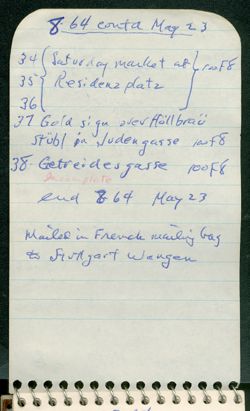 8 64 contd May 23
34 Saturday market at 100F8
35 Residenzplatz
36
37 Gold sign over Höllbräu
Stübl in Judengasse 100F8
38 - Getreidesgasse 100F8
Incomplete
end 8 64 May 23
Mailed in French mailing bag
to Stuttgart Wangen